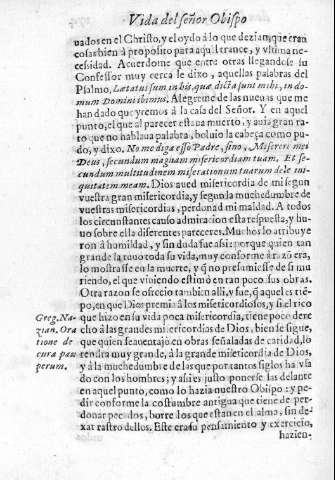 Vida del señor Obispo
uados en el Christo, y el oydo à lo que dezian, que eran
cosas bien à proposito para aquel trance, y vltima ne-
cessidad. Acuerdome que entre otras llegandose su
Confessor muy cerca le dixo, aquellas palabras del
Psalmo, Lætatus sum in his, quæ dicta sunt mihi, in do-
mum Domini ibimus. Alegreme de las nueuas que me
han dado que yremos à la casa del Señor. Y en aquel
punto, el que al parecer estaua muerto, y auia gran ra-
to que no hablaua palabra, boluio la cabeça como pu-
do, y dixo. No me diga esso Padre, sino, Miserere mei
Deus, secundum magnam misericordiam tuam. Et se-
cundum multitudinem miserationum tuarum dele ini-
quitatem meam. Dios aued misericordia de mi segun
vuestra gran misericordia, y segun la muchedumbre de
vuestras misericordias, perdonad mi maldad. A todos
los circunstantes causo admiracion esta respuesta, y hu-
uo sobre ella diferentes pareceres. Muchos lo atribuye
ron à humildad, y sin duda fue assi: porque quien tan
grande la tuuo toda su vida, muy conforme à razõ era,
lo mostrasse en la muerte, y q̃ no presumiesse de si mu
riendo, el que viuiendo estimò en tan poco sus obras.
Otra razon se ofrecio tambien alli, y fue, q̃ aquel es tiẽ-
po, en que Dios premia à los misericordiosos, y si el rico
Greg. Na- que hizo en su vida poca misericordia, tiene poco dere
zian. Ora cho à las grandes misericordias de Dios, bien se sigue,
tione de que quien se auentajò en obras señaladas de caridad, lo
cura pau tendra muy grande, à la grande misericordia de Dios,
perum. y à la muchedumbre de las que por tantos siglos ha vsa
do con los hombres; y assi es justo ponerselas delante
en aquel punto, como lo hazia nuestro Obispo: y pe-
dir conforme la costumbre antigua que tiene de per-
donar pecados, borre los que estan en el alma, sin de-
xat rastro dellos. Este era su pensamiento y exercicio,
hazien-